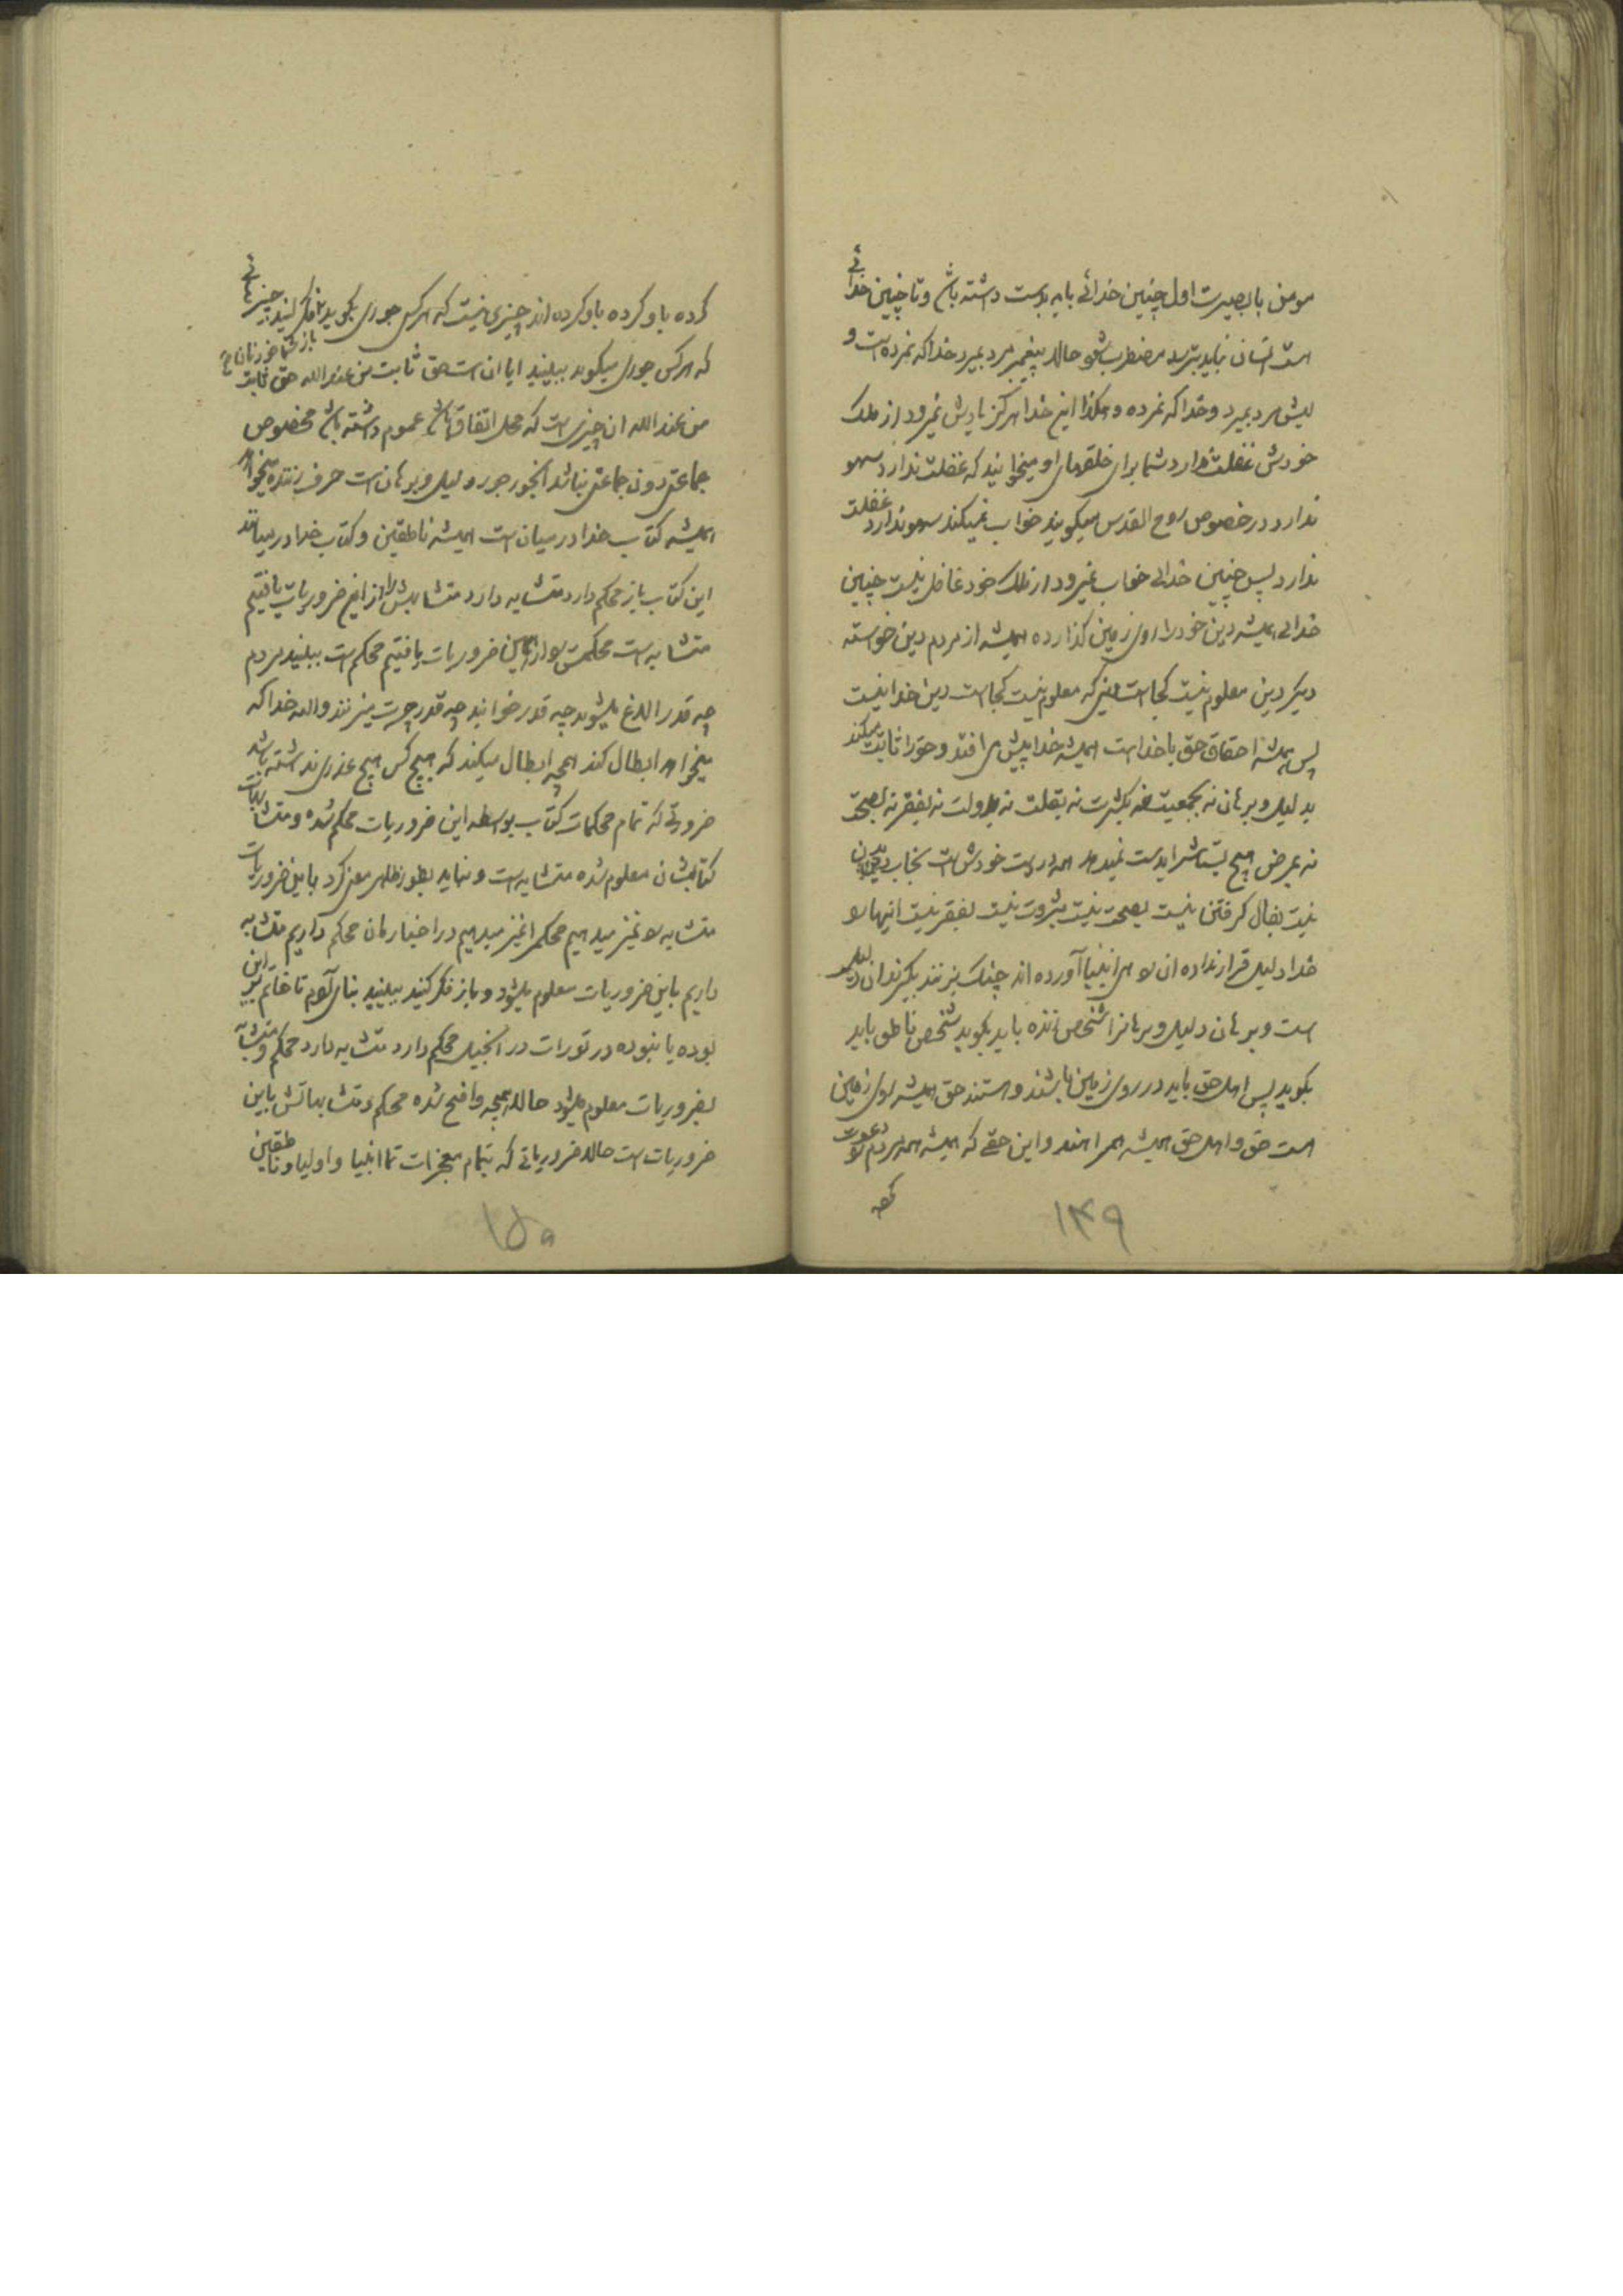 مومن با بصیرت اول چنین خدائی باید بدست داشته باشد و تا چنین خدائی
است انسان نباید بترسد مضطرب شود حالا پیغمبر مرد بمیرد خدا که نمرده است و
بمیرد و خدا که نمرده و هکذا این خدا هرگز یادش نمیرود از ملک
خودش غفلت ندارد شما برای خلقهای او میخوانید که غفلت ندارد سهو
ندارد در خصوص روح القدس میگویند خواب نمیکند سهو ندارد غفلت
ندارد پس چنین خدائی خواب نمیرود از ملک خود غافل نیست چنین
خدائی همیشه دین خود را روی زمین گذارده همیشه از مردم دین خواسته
دیگر دین معلوم نیست کجاست دینی که معلوم نیست کجاست دین خدا نیست
پس همیشه احقاق حق با خداست همیشه خدا پیش می افتد و حق را ثابت میکند
بدلیل و برهان نه بجمعیت نه بکثرت نه بقلت نه بدولت نه بفقر نه بصحت
نه بمرض هیچ یست همه در دست خودش است بخاب دیدن
نیست بفال گرفتن نیست بصحت نیست بثروت نیست بفقر نیست اینها رو
خدا دلیل قرار نداده ان رو که انبیا آورده اند چنگ بزنند بگیرند ان دلیل
است و برهان دلیل و برهان را شخص زنده باید بگوید شخص ناطق باید
بگوید پس اهل حق باید در روی زمین باشند و هستند حق همیشه روی زمین
است حق و اهل حق همیشه همراهند و این حقی که همیشه همه مردم رو دعوت
کرده
۱۴۹
کرده یاو کرده یاو کرده اند چیزی نیست که هرکس جوری بگوید فکر کنید چیزی
که هرکس جوری میگوید ببینید ایا ان است حق ثابت من عندالله حق ثابت
من عندالله ان چیزی است که محل اتفاق باشد عموم داشته باشد مخصوص
جماعتی دون جماعتی نباشد اینجور جور دلیل و برهان است حرف زننده میخواهد
همیشه کتاب خدا در میان است همیشه ناطقین و کتاب خدا در میانند
این کتاب باز محکم دارد متشابه دارد متشابهش را از این ضروریات یافتیم
متشابه است محکمش رو از همین ضروریات یافتیم محکم است ببینید مردم
چه قدر الاغ میشوند چه قدر خوابند چه قدر چرت میزنند والله خدا که
میخواهد ابطال کند همچه ابطال میکند که هیچ کس هیچ عذری نداشته باشد
ضروتی که تمام محکمات کتاب بواسطه این ضروریات محکم شده و متشابهات
کتابشان معلوم شده متشابه است و نباید بطور ظاهر معنی کرد باین ضروریات
متشابه رو تمیز میدهیم محکم را تمیز میدهیم در اخبارمان محکم داریم متشابه
داریم باین ضروریات معلوم میشود و باز فکر کنید ببینید بنای آدم تا خاتم براین
بوده یا نبوده در تورات در انجیل محکم دارد متشابه دارد محکم و متشابه
بضروریات معلوم میشود حالا همچه واضح شده محکم و متشابهاتش باین
ضروریات است حالا ضروریاتی که بتمام معجزات تما انبیا و اولیا و ناطقین
۱۵۰